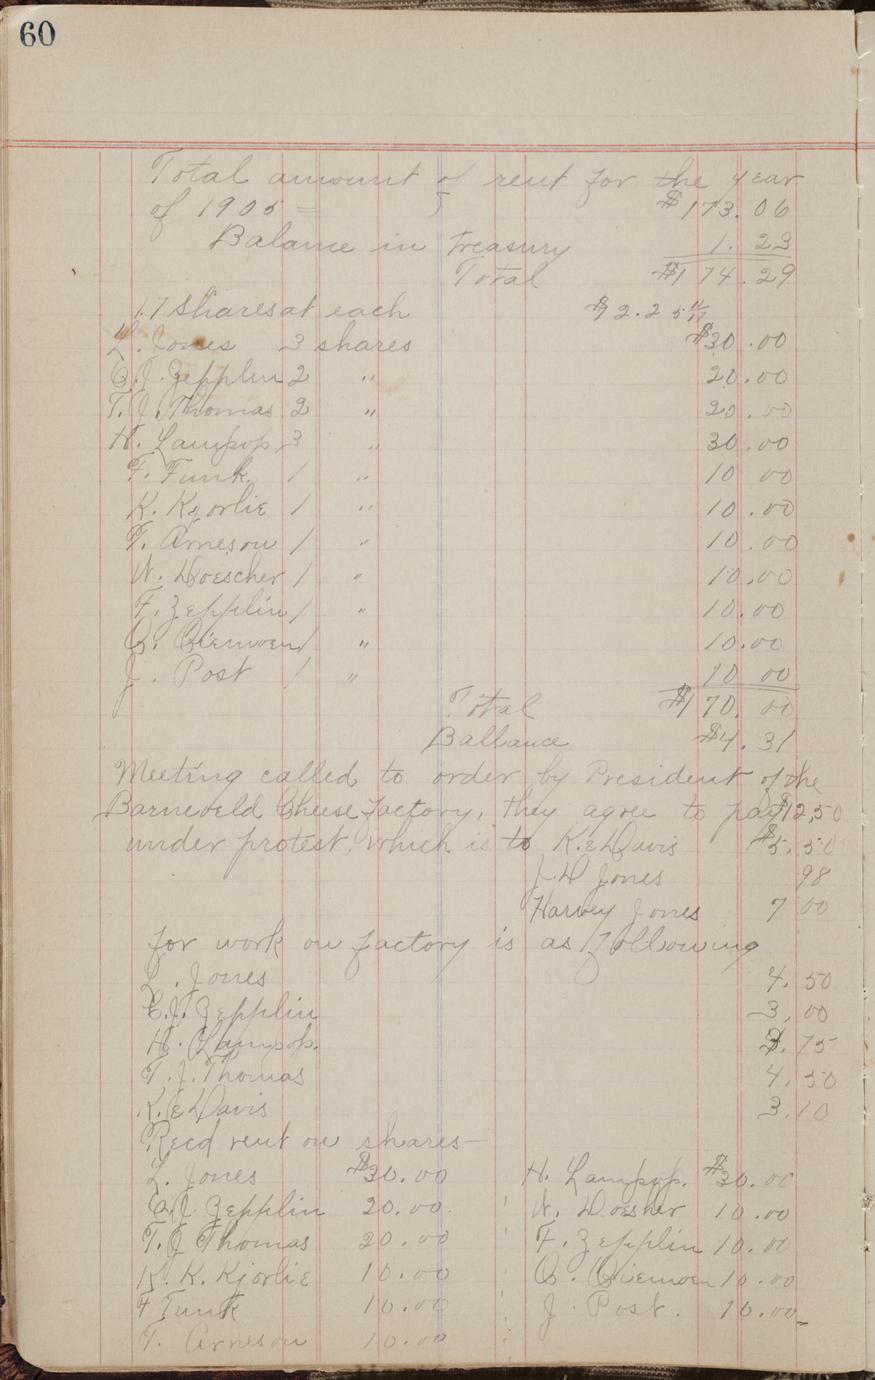 60
Total amount of rent for the year
of 1905 = $173.06
Balance in treasury 1.23
Total $174.29
17 shares at each $ 2.25 11/17
L. Jones 3 shares $30.00
C.J. Zepplin 2 " 20.00
T.J. Thomas 2 " 20.00
H. Lampop 3 " 30.00
F. Funk 1 " 10 00
K. Kjorlie 1 " 10.00
T. Arneson 1 " 10.00
W. Doescher 1 " 10.00
F. Zepplin 1 " 10.00
O. Oiemoen 1 " 10.00
J. Post 1 " 10 00
Total $170.00
Ballance $4.31
Meeting called to order by President of the
Barneveld Cheese factory, they agree to pay $12,50
under protest, which is to K.E Davis $5.50
J.D Jones 98
Harvey Jones 7 00
for work on factory is as following
L. Jones 4.50
C.J. Zepplin 3.00
H. Lampop. .75
T.J. Thomas 4.50
K.E Davis 3.10
Recd rent on shares—
L. Jones $30.00 H. Lampop. $30.00
C.J. Zepplin 20.00 W. Doesher 10.00
T.J Thomas 20.00 F. Zepplin 10.00
K. K. Kjorlie 10.00 O. Oiemoen 10.00
F Funk 10.00 J. Post. 10.00
T. Arneson 10.00